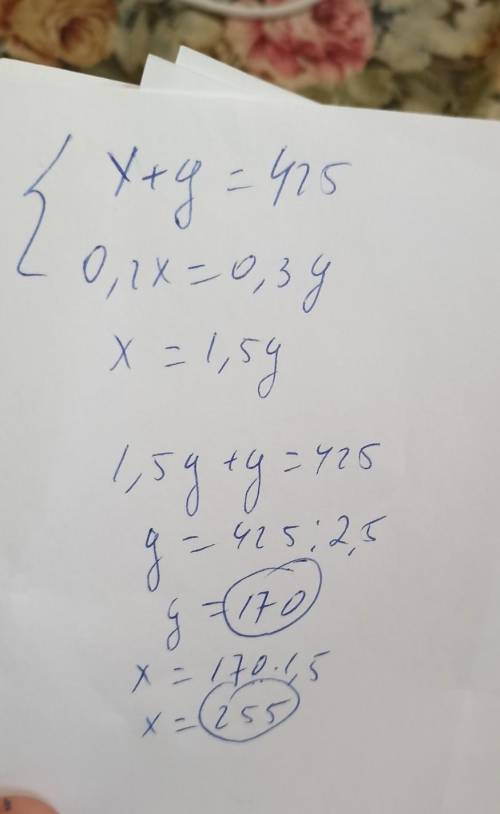 x+y=425
0,2x=0,3y
x=1,5y
1,5y+y=425
y=425:2,5
y=170
x=170·1,5
x=255